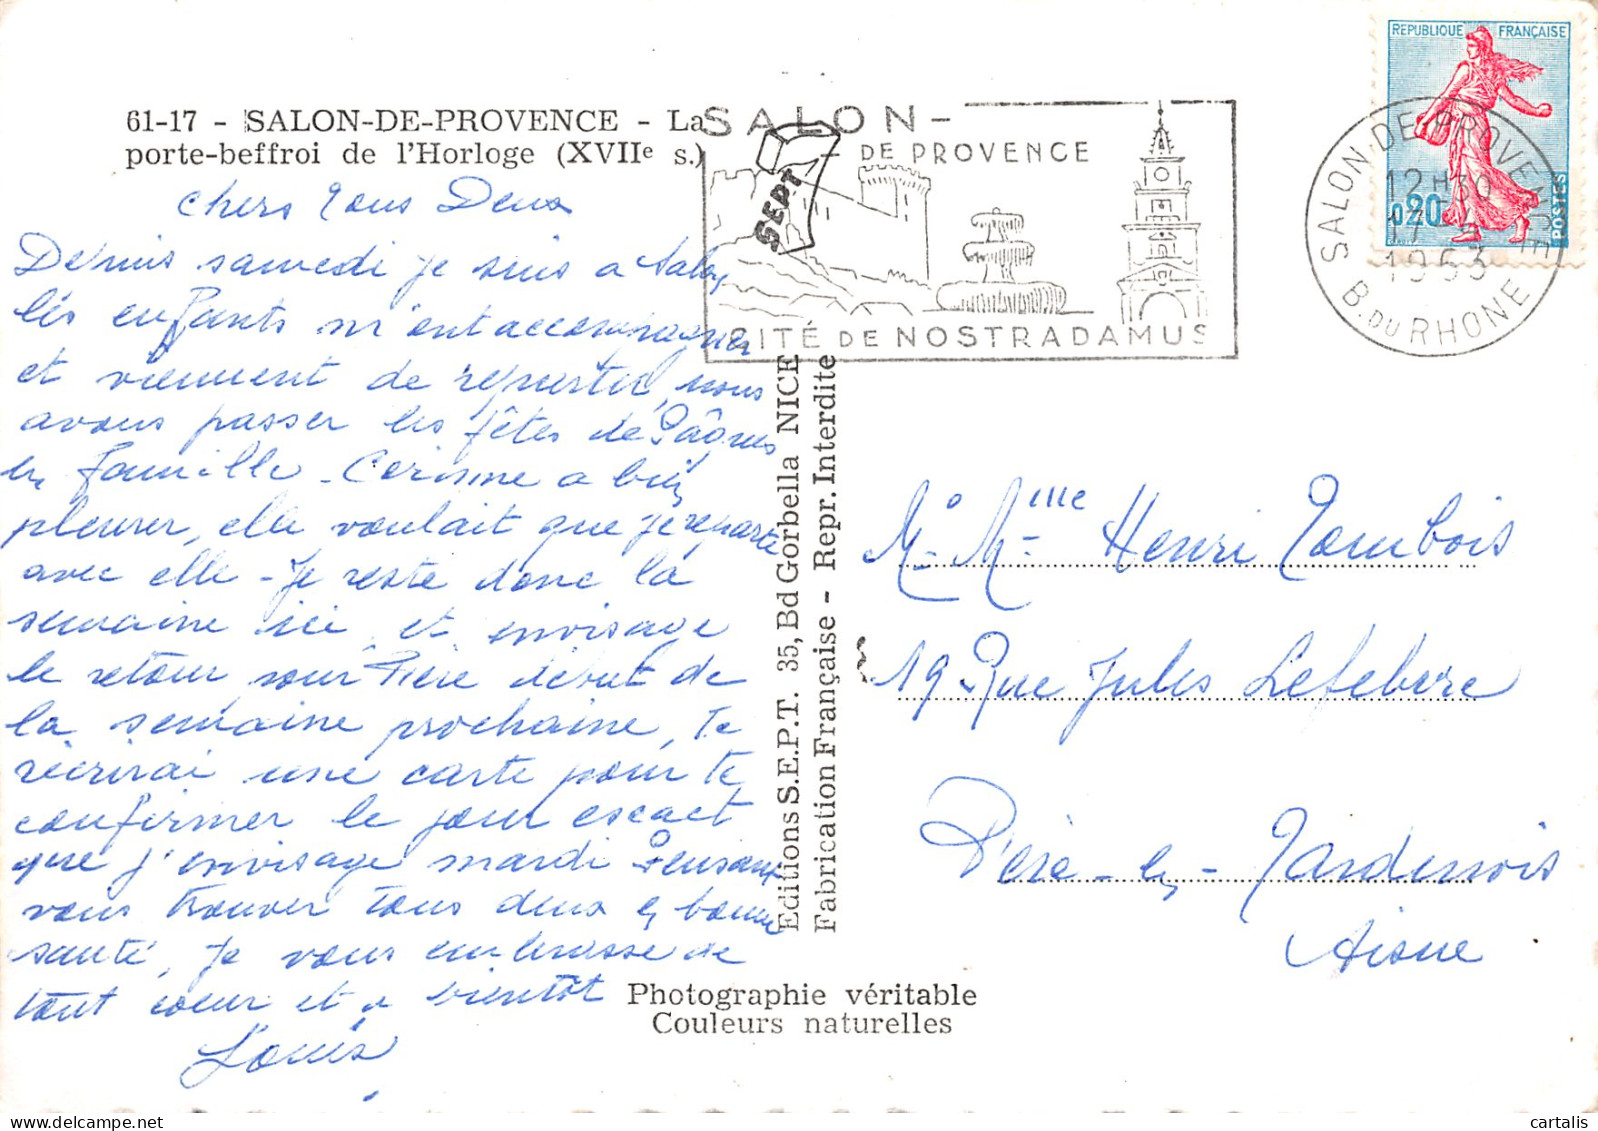 61-17 - SALON-DE-PROVENCE - La
porte-beffroi de l'Horloge (XVIIe s.)
Chers Tous Deux
Depuis samedi je suis a Salon
les enfants m'ont accompagner
et viennent de repartir, nous
avons passer les fêtes de Pâques
en famille - Corinne a bien
pleurer, elle voulait que je reparte
avec elle - Je reste donc la
semaine ici, et envisage
le retour pour Fère début de
la semaine prochaine, Te
récrirai une carte pour te
confirmer le jour escact
que j'envisage mardi Pensant
vous trouver tous deux en bonne
santé, Je vous embrasse de
tout coeur et a bientôt
Louis
SALON-
DE PROVENCE
SEPT
CITÉ DE NOSTRADAMUS
REPUBLIQUE FRANÇAISE
0,20
POSTES
SALON DE PROVENCE
12H30
17
1963
B. DU RHONE
Editions S.E.P.T. 35, Bd Gorbella NICE
Fabrication Française - Repr. Interdite
Mr Mme Henri Tombois
19 Rue Jules Lefebvre
Fère-en-Tardenois
Aisne
Photographie véritable
Couleurs naturelles
cartalis